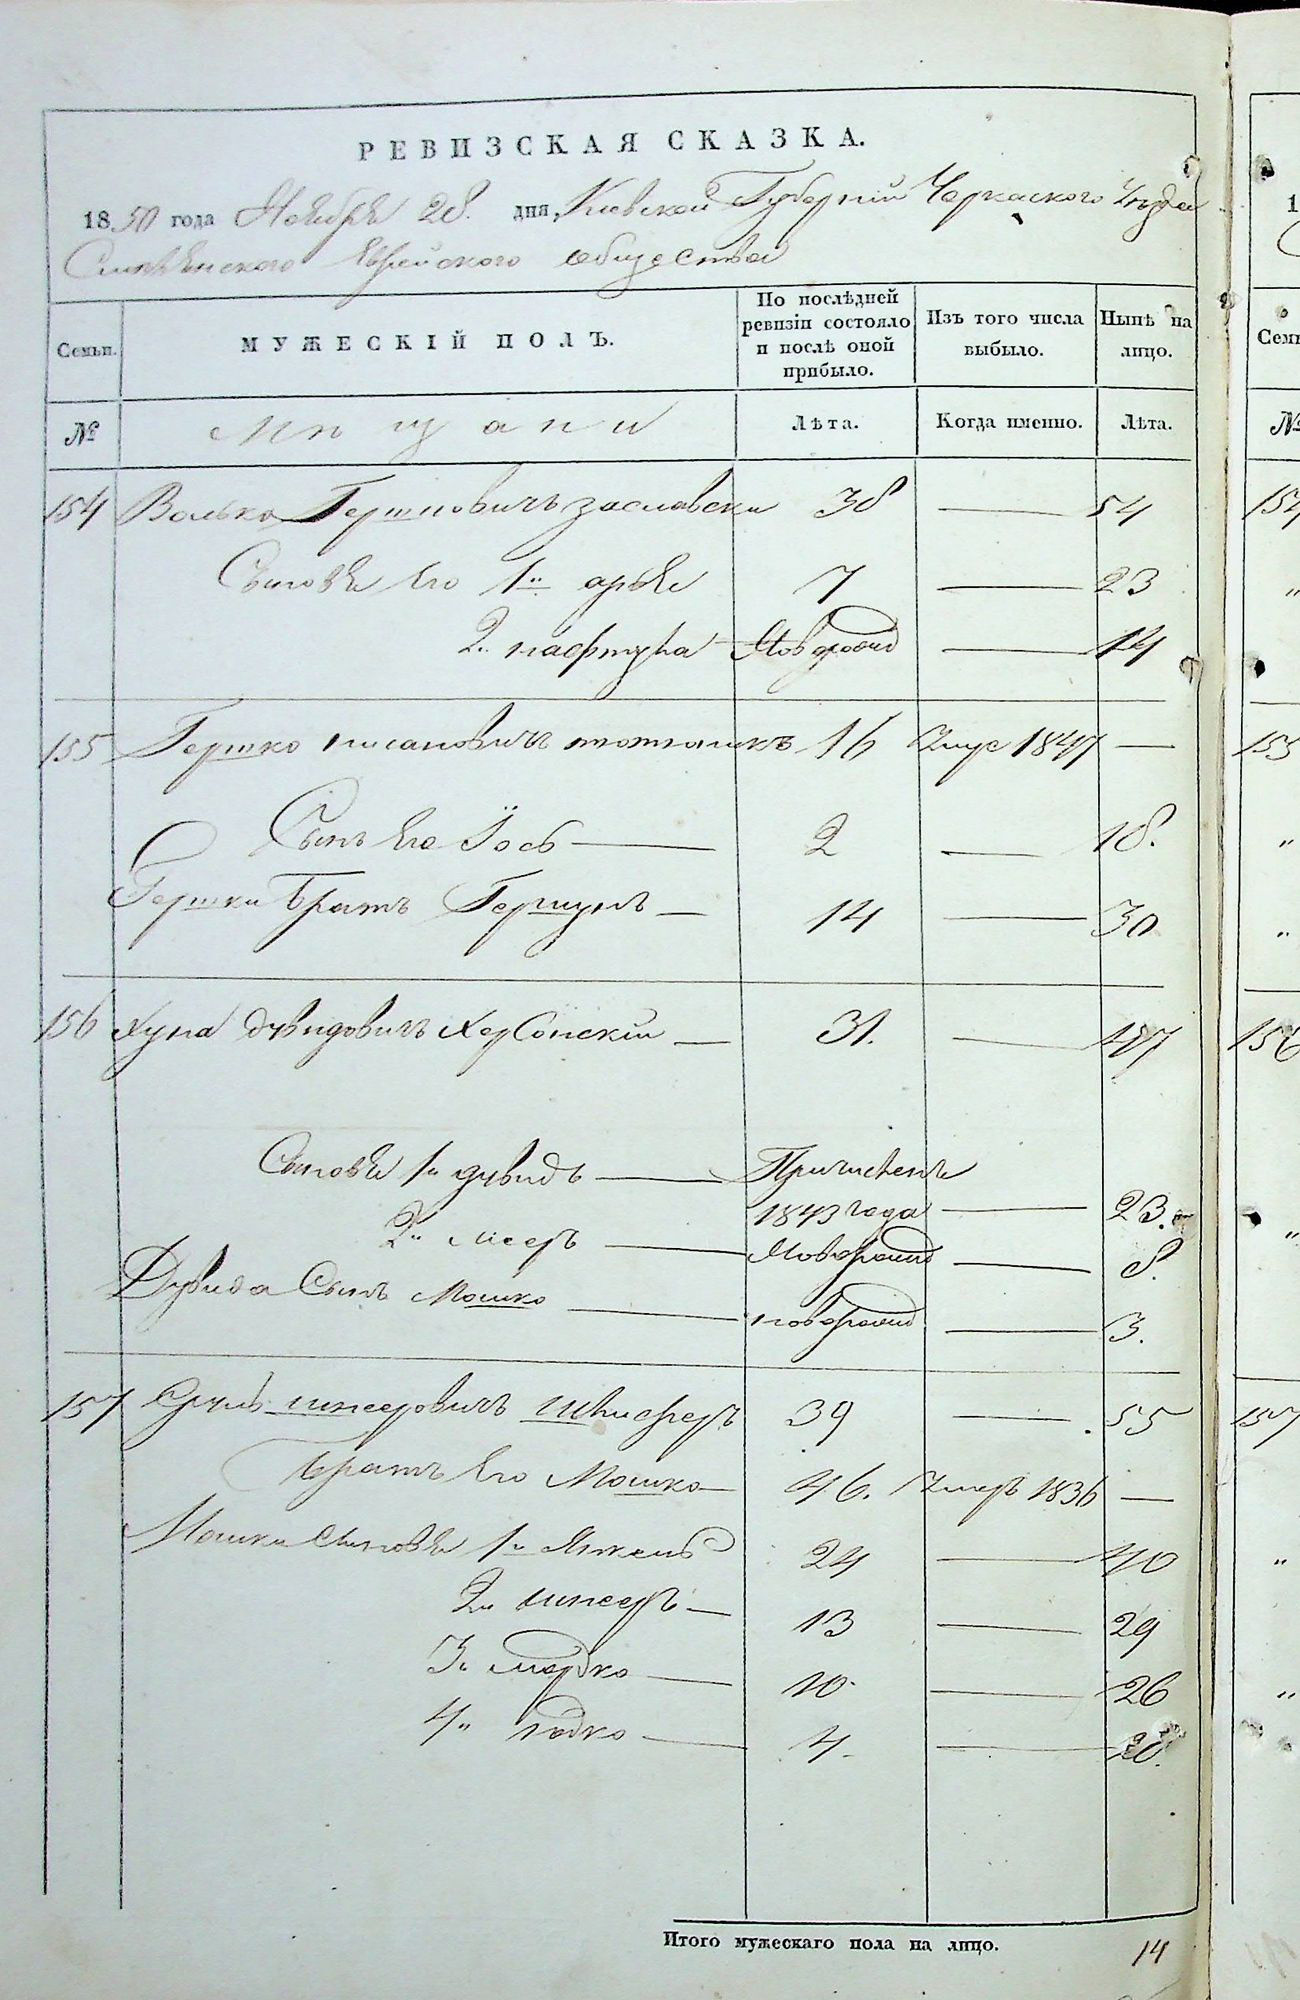 РЕВИЗСКАЯ СКАЗКА.
1850 года Ноября 28. дня, Киевской Губернии Черкаского Уезда
Смелянского Еврейского общества
Семьи.
МУЖЕСКІЙ ПОЛЪ.
По послѣдней ревизіи состояло и послѣ оной прибыло.
Изъ того числа выбыло.
Нынѣ на лицо.
№ Мещани Лѣта. Когда именно. Лѣта.
154 Волько Гершковичъ Заславски 38 — 54
Сыновья Его 1й арье 7 — 23
2. нафтула Новорожд — 14
155 Гершко 16 Умре 1847 —
Сынъ Его Іось — 2 — 18.
Гершки Братъ — 14 — 30
156 Хуна дувидовичъ Херсонскій — 31. — 47
Сыновья 1й дувидъ — Причисленъ
1843 года — 23.
2й меер — Новорожд — 8.
Дувида Сынъ Мошко — новорожд — 3.
157 Сруль 39 — 55
Братъ Его Мошко — 46. Умеръ 1836 —
Мошки Сыновья 1й Янкель 24 — 40
2й — 13 — 29
3й мордко — 10 — 26
4й — 4 — 20.
Итого мужескаго пола на лицо. 14
1
Семь
№
154
"
155
"
"
156
"
157
"
"